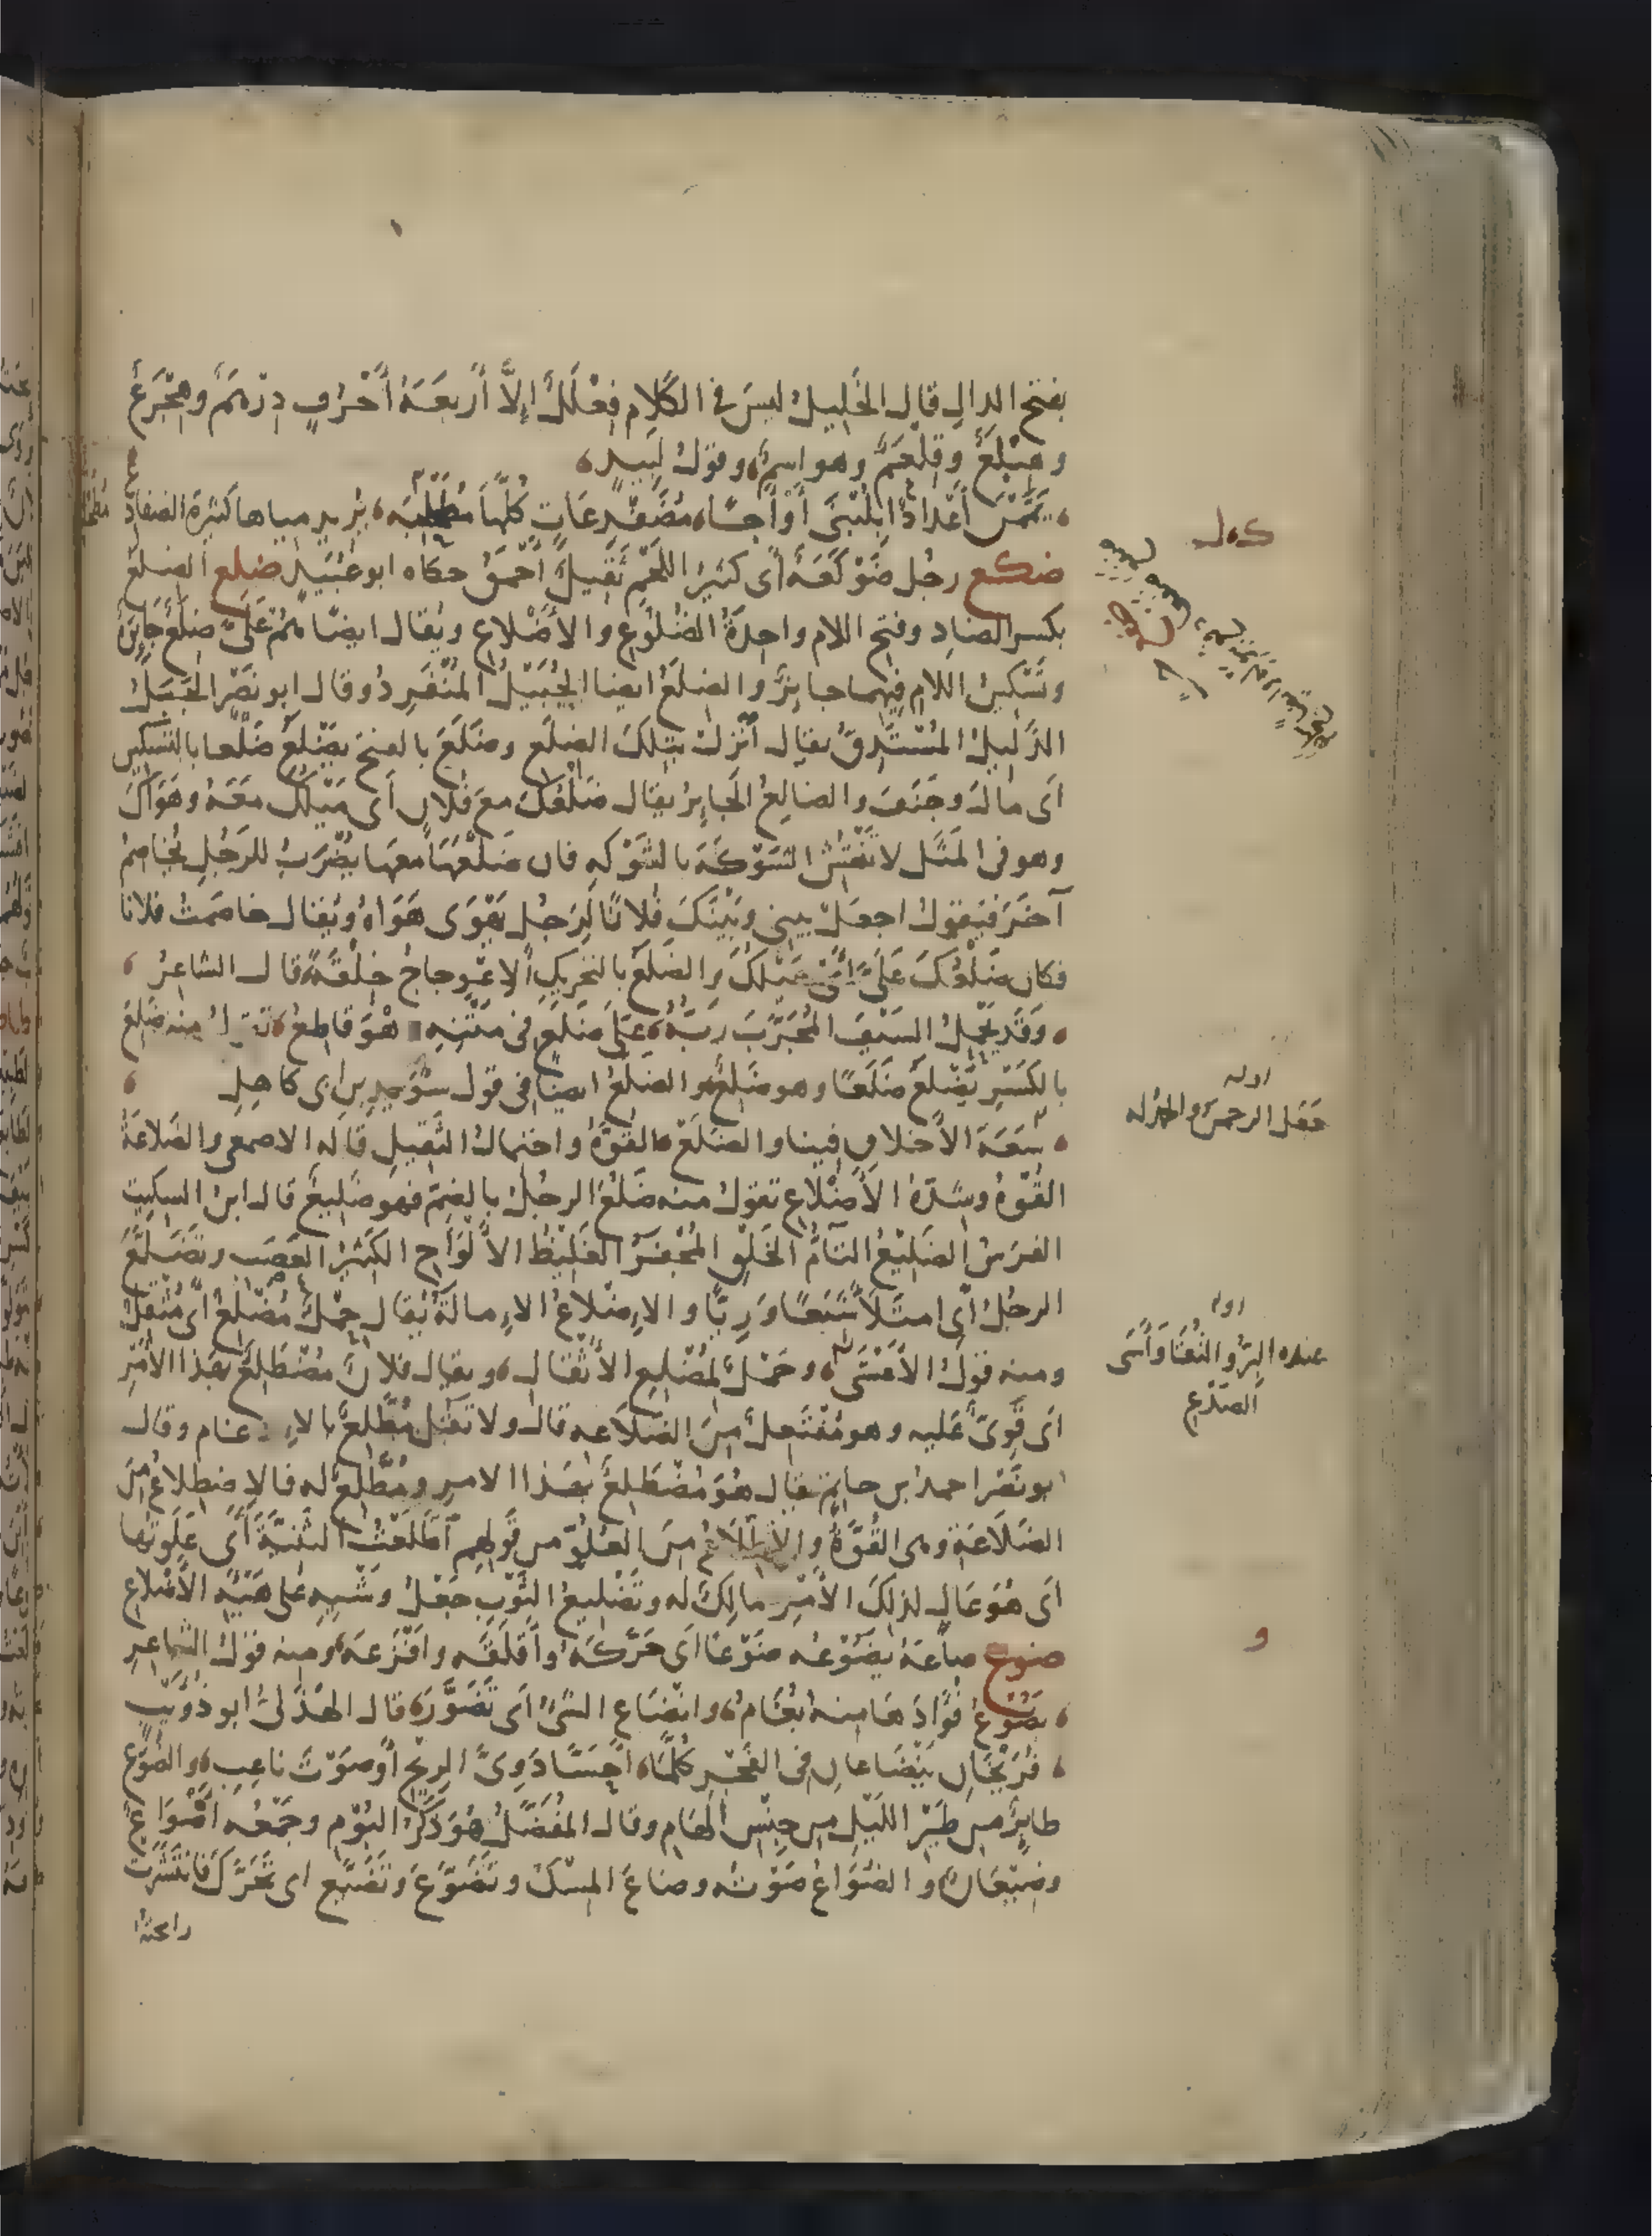 بفتح الدالِ قال الخليلُ ليسَ فى الكَلامِ فِعْلَلٌ إلّا أَربعَةُ أَحْرُفٍ دِرْهَمٌ وهِجْرَعٌ
وهِبْلَعٌ وقِلْعَمٌ وهو اسمٌ وقولُ لَبيدٍ
يَمَّمْنَ أَعْدادًا بِلُبْنَى أَوْ أَجَا، مُضَفْدِعَاتٍ كُلُّهَا مُطَحْلِبَه، يُرِيد مياها كثيرَة الضفادع
ضكع رجُل ضَوْكَعَةٌ أى كثيرُ اللَّحْمِ ثَقيلٌ أَحْمَقُ حكاه ابو عُبَيدٍ ضلع الضِلَعُ
بكسر الضادِ وفتح اللام واحِدَةُ الضُلُوعِ والأَضْلاعِ ويُقال ايضًا هُمْ عَلَىَّ ضِلَعٌ جَائِرَةٌ
وتَسْكينُ اللامِ فيهما جايزٌ والضِلَعُ ايضا الجُبَيْلُ المُنْفَرِدُ وقال ابو نَصْر الجَبَلُ
الذليلُ المُسْتَدِقُّ يقال انْزِلْ بتِلكَ الضِلَعِ وضَلَعَ بالفتح يَضْلَعُ ضَلْعًا بالتَسْكين
اى مالَ وجَنَفَ والضالِعُ الجَايِرُ يقال ضَلْعُكَ معَ فُلانٍ أى مَيْلُكَ معَهُ وهَوَاكَ
وهو فى المَثَل لا تَنْقُشِ الشَوْكَةَ بالشَوْكه فان ضَلْعَهَا معها يُضْرَبُ للرَجُل يُخاصِمُ
آخَرَ فيَقولُ اجعَلْ بينى وبَيْنَكَ فُلانًا لِرَجُلٍ يَهْوَى هَوَاهُ ويُقال خاصَمتُ فلانا
فكان ضَلْعُكَ عَلَىَّ أَىْ مَيْلُكَ والضَلَعُ بالتحريكِ الاعْوِجاجُ خِلْقَةً قال الشاعرُ
وقَد يَحْمِلُ السَيْفَ المُجَرَّبَ رَبُّهُ، عَلَى ضَلَعٍ فى مَتْنِهِ وهْوَ قاطِعُ تقولُ منه ضَلِعَ
بالكَسْرِ يَضْلَعُ ضَلَعًا وهو ضَلِعٌ والضَلَعُ ايضًا فى قول سُوَيدِ بن ابى كاهِلٍ
سَعَةَ الأَخلاقِ فينا والضَلَعْ القُوَّةُ واحتمالُ الثَقيلِ قاله الاصمعى والضَلاعَةُ
القُوَّةُ وشِدّةُ الأَضْلاعِ تقولُ منه ضَلُعَ الرجُلُ بالضمّ فهو ضَليعٌ قال ابنُ السكيت
الفرَسُ الضَليعُ التامُّ الخَلْقِ المُجْفَرُ الغَليظُ الأَلْوَاحِ الكَثيرُ العَصَبِ وتَضَلَّعَ
الرجُلُ أى امتَلأَ شِبَعًا ورِيًّا والإضْلاعُ الإمالَةُ يُقال حِمْلٌ مُضْلِعٌ أى مُثْقِلٌ
ومنه قولُ الأَعْشَى، وحَمْلٌ لمُضْلِعِ الأَثْقالِ، ويقال فلانٌ مُضْطَلِعٌ بهَذا الأَمْرِ
أى قَوِىٌّ عَليه وهو مُفْتَعِلٌ منَ الضَلاَعه قال ولا تَقُل مُطَّلِعٌ بالإدغام وقال
ابو نَصْر احمدُ بن حاتِم يقال هُوَ مُضْطَلِعٌ بهَذا الامرِ ومُطَّلِعٌ له فالاضطلاعُ منَ
الضَلاَعَةِ وهى القُوَّةُ والاطِّلاَعُ منَ العُلُوّ من قَولِهِم اطَّلَعْتُ الثَنِيَّةَ أَى عَلَوتُها
أى هُوَ عَالٍ لذلكَ الأَمْرِ مالكٌ له وتَضْليعُ الثَوْبِ جَعْلُ وَشْيِهِ على هَيْئَةِ الأَضْلاعِ
ضوع ضاعَهُ يضُوْعُه ضَوْعًا أى حَرَّكَهُ وأَقلَقَه وافْزَعَهُ ومنه قولُ الشاعِرِ
يضُوْعُ فُؤَادَهَا منهُ بُغَامُ، وانْضَاع الشىُ أى تَضَوَّرَ، قال الهُذَلىُّ ابو ذُؤَيْبٍ
فُرَيْخَانِ يَنْضَاعانِ فى الفَجْرِ كُلَّمَا، أَحَسَّا دَوِىَّ الرِيحِ أَوْ صَوْتَ ناعِبِ، والضُوَعُ
طايرٌ من طَيْرِ اللَيْلِ من جِنْسِ الهَامِ وقال المُفَضَّلُ هُوَ ذَكَرُ البُوْمِ وجَمْعُه أَضْوَاعٌ
وضِيْعَانٌ والضُوَاعُ صَوْتُه وضاعَ المِسْكُ وتَضَوَّعَ وتَضَيَّعَ اى تَحَرَّكَ فانْتَشَرَتْ
رائحته
اوله
جَعَل الرحمنُ والحمد له
اوله
عنده البِرُّ والتُقَى وَأَسَى
الصَدْعِ
و